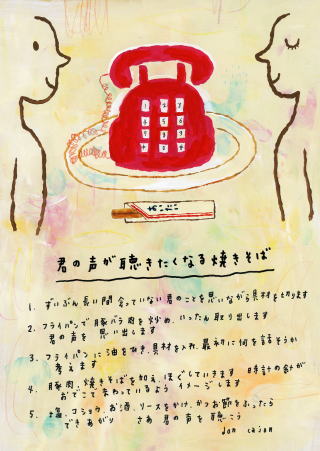 君の声が聴きたくなる焼きそば
1. ずいぶん長い間会っていない君のことを思いながら具材を切ります
2. フライパンで豚バラ肉を炒め、いったん取り出します
君の声を 思い出します
3. フライパンに油をひき、具材を入れ、最初に何を話そうか
考えます
4. 豚肉、焼きそばを加え、ほぐしていきます 時計の針が
おでこで まわっているよう イメージします
5. 塩、コショウ、お酒、ソースをかけ、かつお節をふったら
できあがり さあ 君の声を 聴こう
don cajon